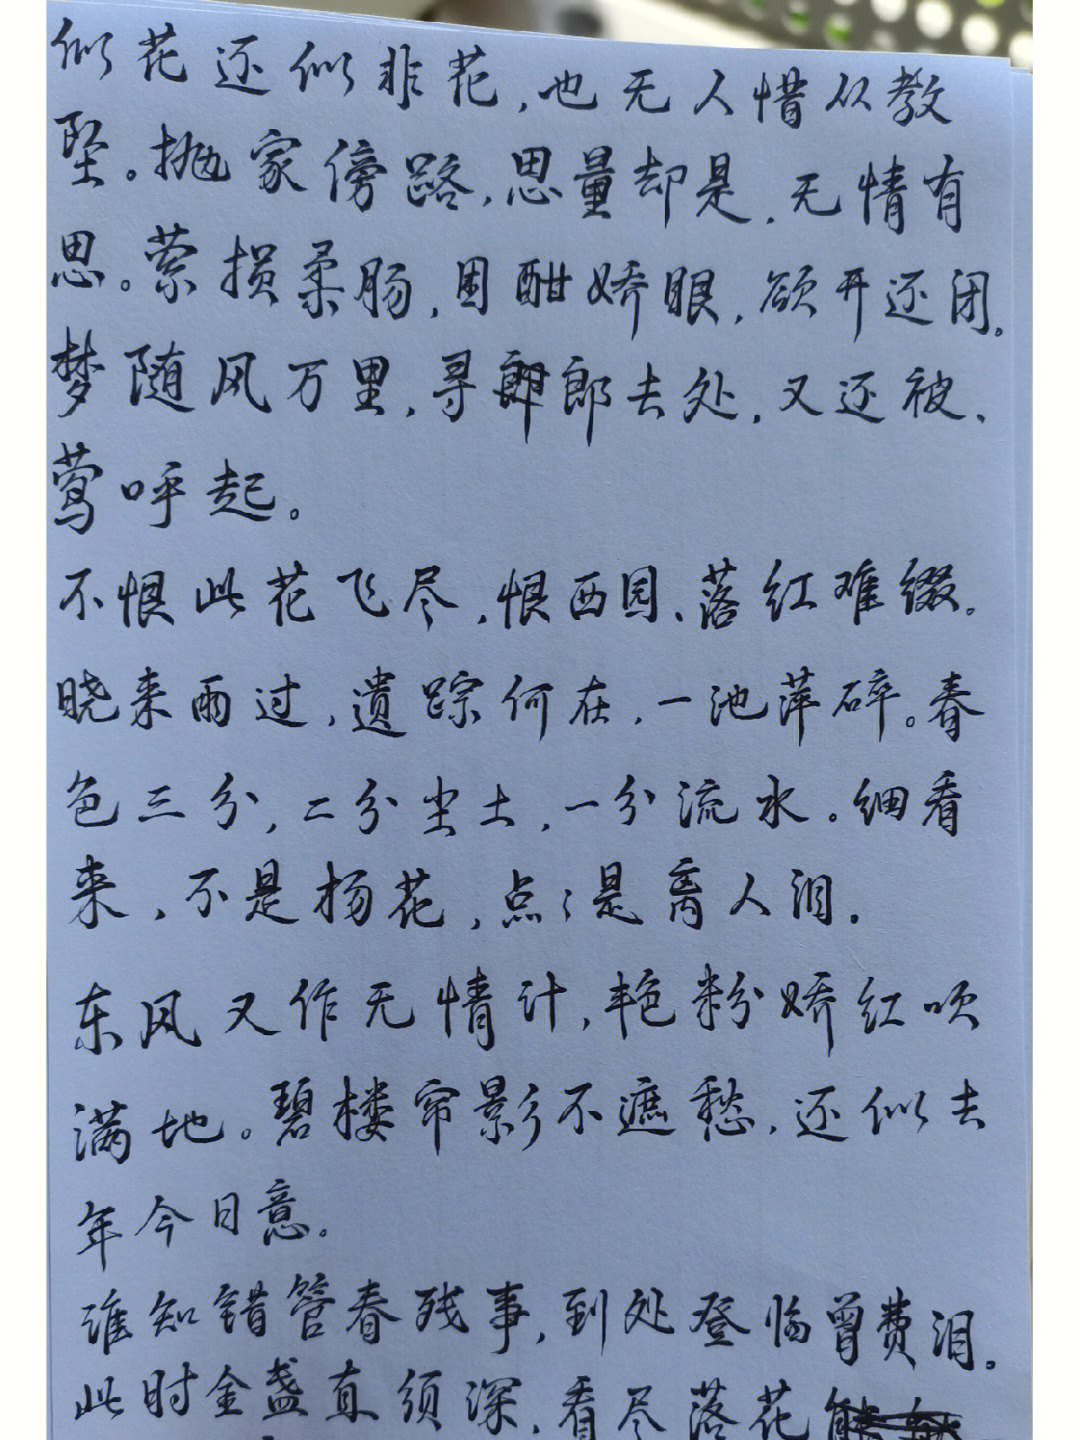 似花还似非花，也无人惜从教
坠。抛家傍路，思量却是，无情有
思。萦损柔肠，困酣娇眼，欲开还闭。
梦随风万里，寻郎去处，又还被、
莺呼起。
不恨此花飞尽，恨西园、落红难缀。
晓来雨过，遗踪何在，一池萍碎。春
色三分，二分尘土，一分流水。细看
来，不是杨花，点点是离人泪。
东风又作无情计，艳粉娇红吹
满地。碧楼帘影不遮愁，还似去
年今日意。
谁知错管春残事，到处登临曾费泪。
此时金盏直须深，看尽落花能